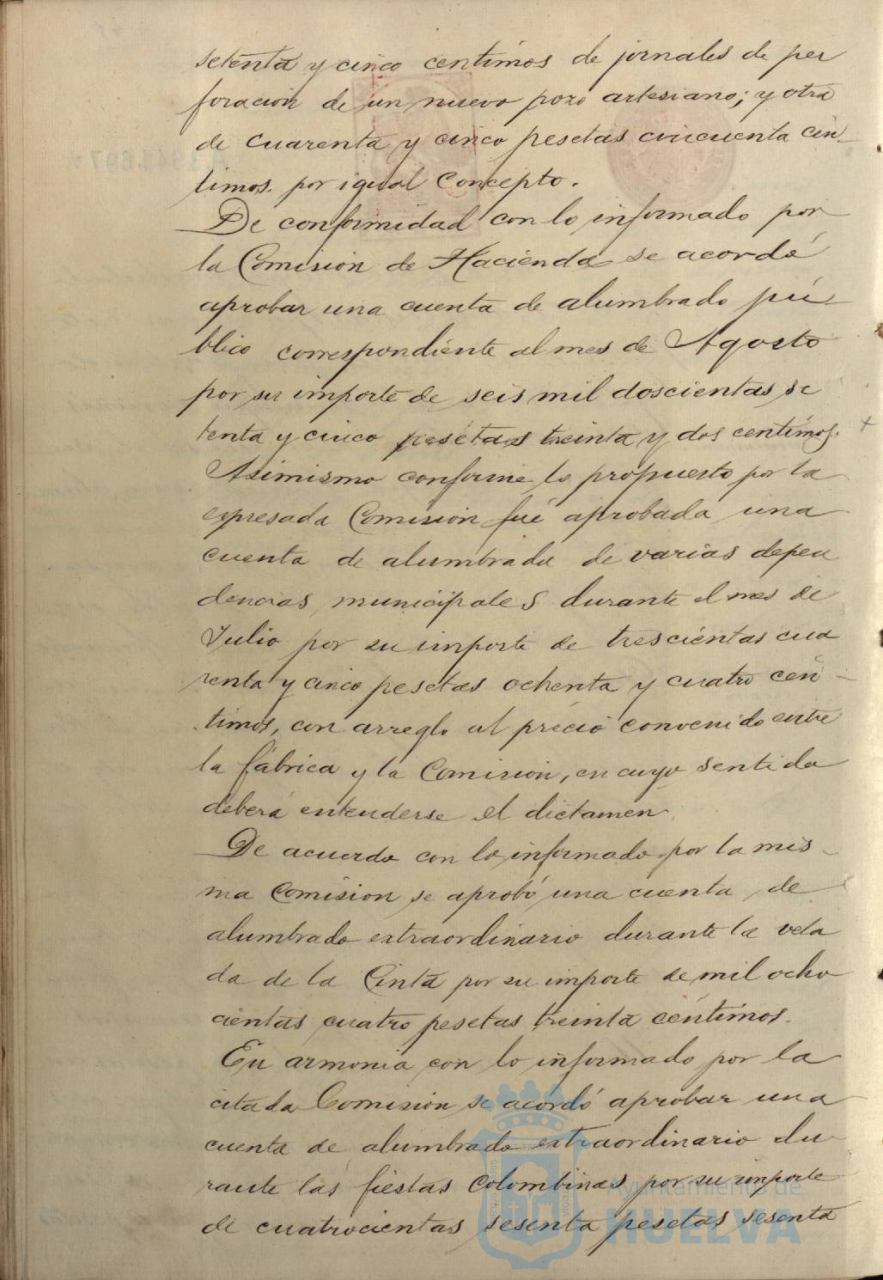 setenta y cinco centimos de jornales de per
foracion de un nuevo pozo artesiano; y otra
de cuarenta y cinco pesetas cincuenta cén-
timos por igual concepto.
De conformidad con lo informado por
la Comision de Hacienda se acordó
aprobar una cuenta de alumbrado pú-
blico correspondiente al mes de Agosto
por su importe de seis mil doscientas se
tenta y cinco pesétas treinta y dos centímos.
Asimismo conforme lo propuesto por la
expresada Comision fué aprobada una
cuenta de alumbrado de varias depen
dencias municipales durante el mes de
Julio por su importe de trescientas cua
renta y cinco pesetas ochenta y cuatro cén-
timos, con arreglo al précio convenido entre
la fábrica y la Comision, en cuyo sentido
deberá entenderse el dictamen.
De acuerdo con lo informado por la mis-
ma Comision se aprobó una cuenta de
alumbrado extraordinario durante la vela
da de la Cinta por su importe de mil ocho
cientas cuatro pesetas treinta céntimos.
En armonia con lo informado por la
citada Comision se acordó aprobar una
cuenta de alumbrado extraordinario du-
rante las fiestas colombinas por su importe
de cuatrocientas sesenta pesetas sesenta
Ayuntamiento de
HUELVA